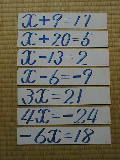 x+9=17
x+20=5
x-13=2
x-6=-9
3x=21
4x=-24
-6x=18